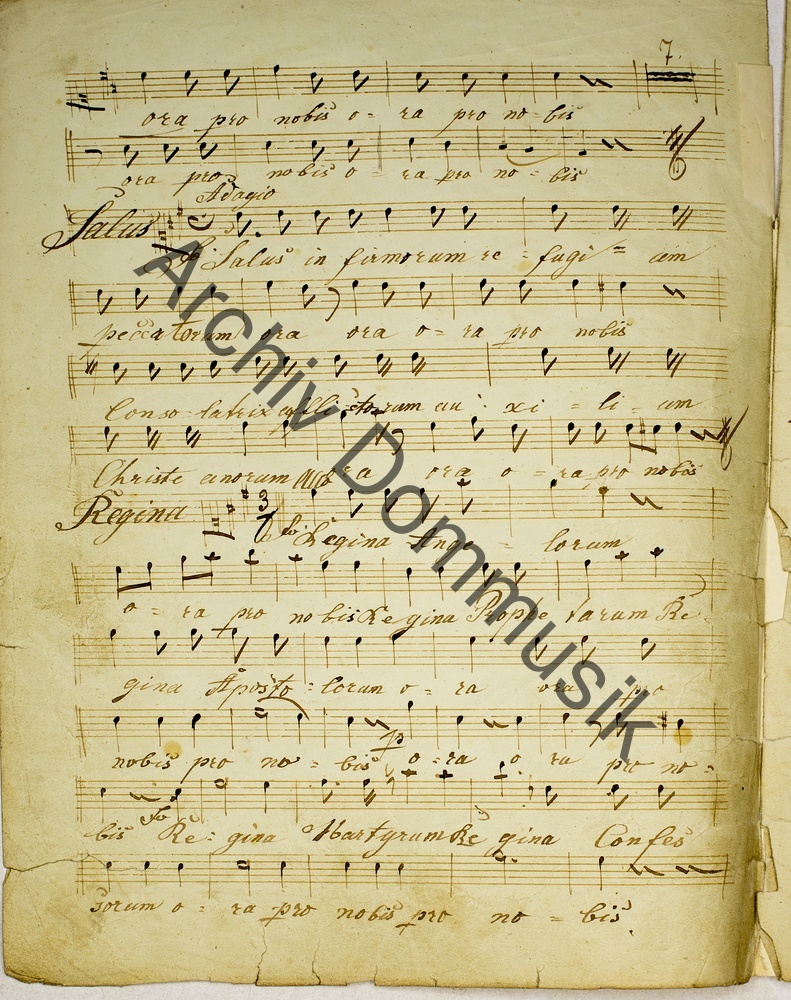 7.
ora pro nobis o = ra pro no - bis
ora pro nobis o = ra pro no - bis
Adagio
Salus
Salus in firmorum re = fugi = um
peccatorum ora ora o = ra pro nobis
Conso = latrix afflictorum au : xi = li = um
Christe anorum ora ora o = ra pro nobis
Regina 3
Regina Ange = lorum
o = ra pro nobis Regina Prophe tarum Re
gina Aposto = lorum o = ra ora pro
p
nobis pro no = bis o = ra o ra pro no =
bis Re = gina Martyrum Re gina Confes
sorum o = ra pro nobis pro no = bis.
Archiv Dommusik